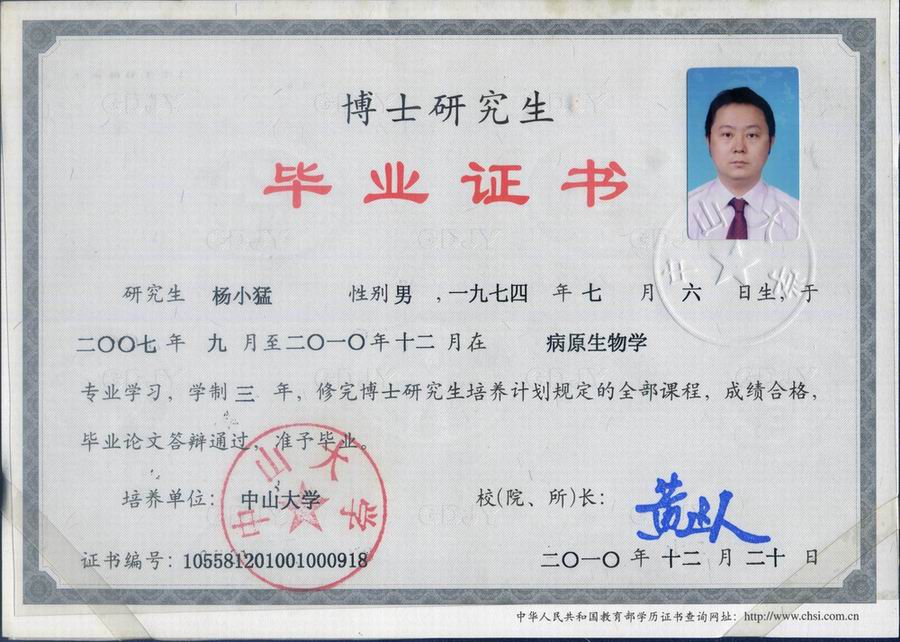 博士研究生
毕业证书
研究生 杨小猛 性别 男 ,一九七四 年 七 月 六 日生,于
二〇〇七 年 九 月至 二〇一〇 年 十二 月在 病原生物学
专业学习,学制 三 年,修完博士研究生培养计划规定的全部课程,成绩合格,
毕业论文答辩通过,准予毕业。
培养单位: 中山大学 校(院、所)长: 黄达人
证书编号: 105581201001000918 二〇一〇 年 十二 月 二十 日
中华人民共和国教育部学历证书查询网址: http://www.chsi.com.cn
中山大学
中山大学